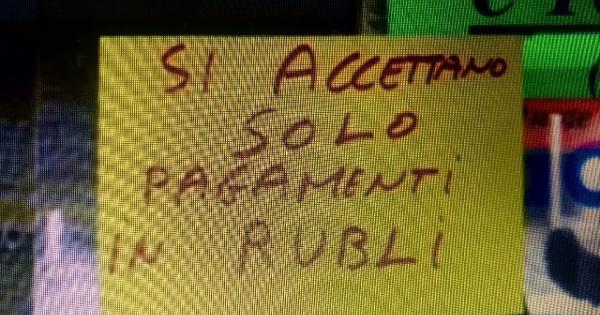 SI ACCETTANO
SOLO
PAGAMENTI
IN RUBLI